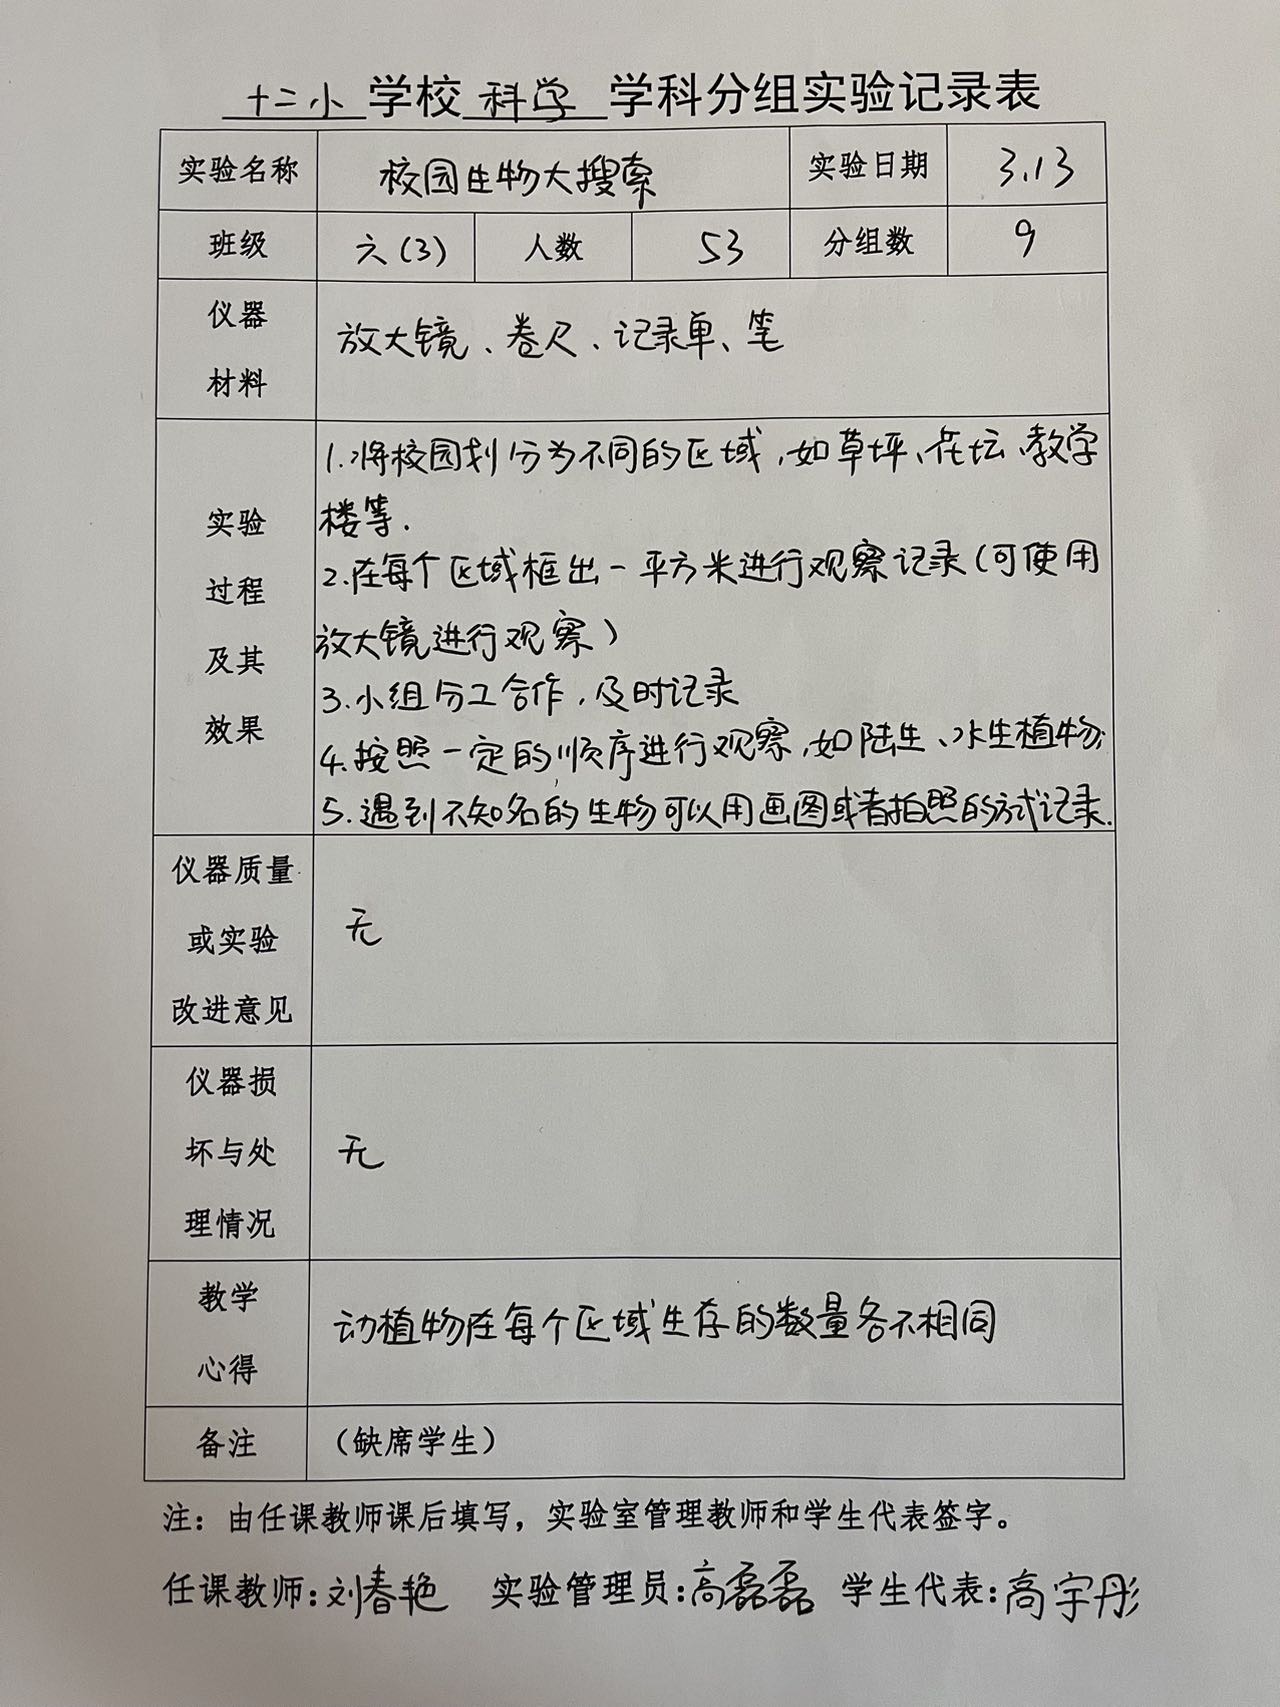 十二小 学校 科学 学科分组实验记录表
实验名称 校园生物大搜索 实验日期 3.13
班级 六(3) 人数 53 分组数 9
仪器
材料
放大镜、卷尺、记录单、笔
实验
过程
及其
效果
1.将校园划分为不同的区域,如草坪、花坛、教学
楼等.
2.在每个区域框出一平方米进行观察记录(可使用
放大镜进行观察)
3.小组分工合作,及时记录
4.按照一定的顺序进行观察,如陆生、水生植物;
5.遇到不知名的生物可以用画图或者拍照的方式记录.
仪器质量
或实验
改进意见
无
仪器损
坏与处
理情况
无
教学
心得
动植物在每个区域生存的数量各不相同
备注 (缺席学生)
注：由任课教师课后填写，实验室管理教师和学生代表签字。
任课教师:刘春艳 实验管理员:高磊磊 学生代表:高宇彤